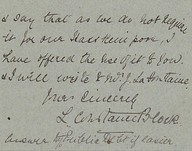 & say that as we do not require
it for our Hacskeinpoor, I
have offered the use of it to Gov.
& I will write to Mr J. LaFontaine
Yours sincerely
L Constance Black
answer